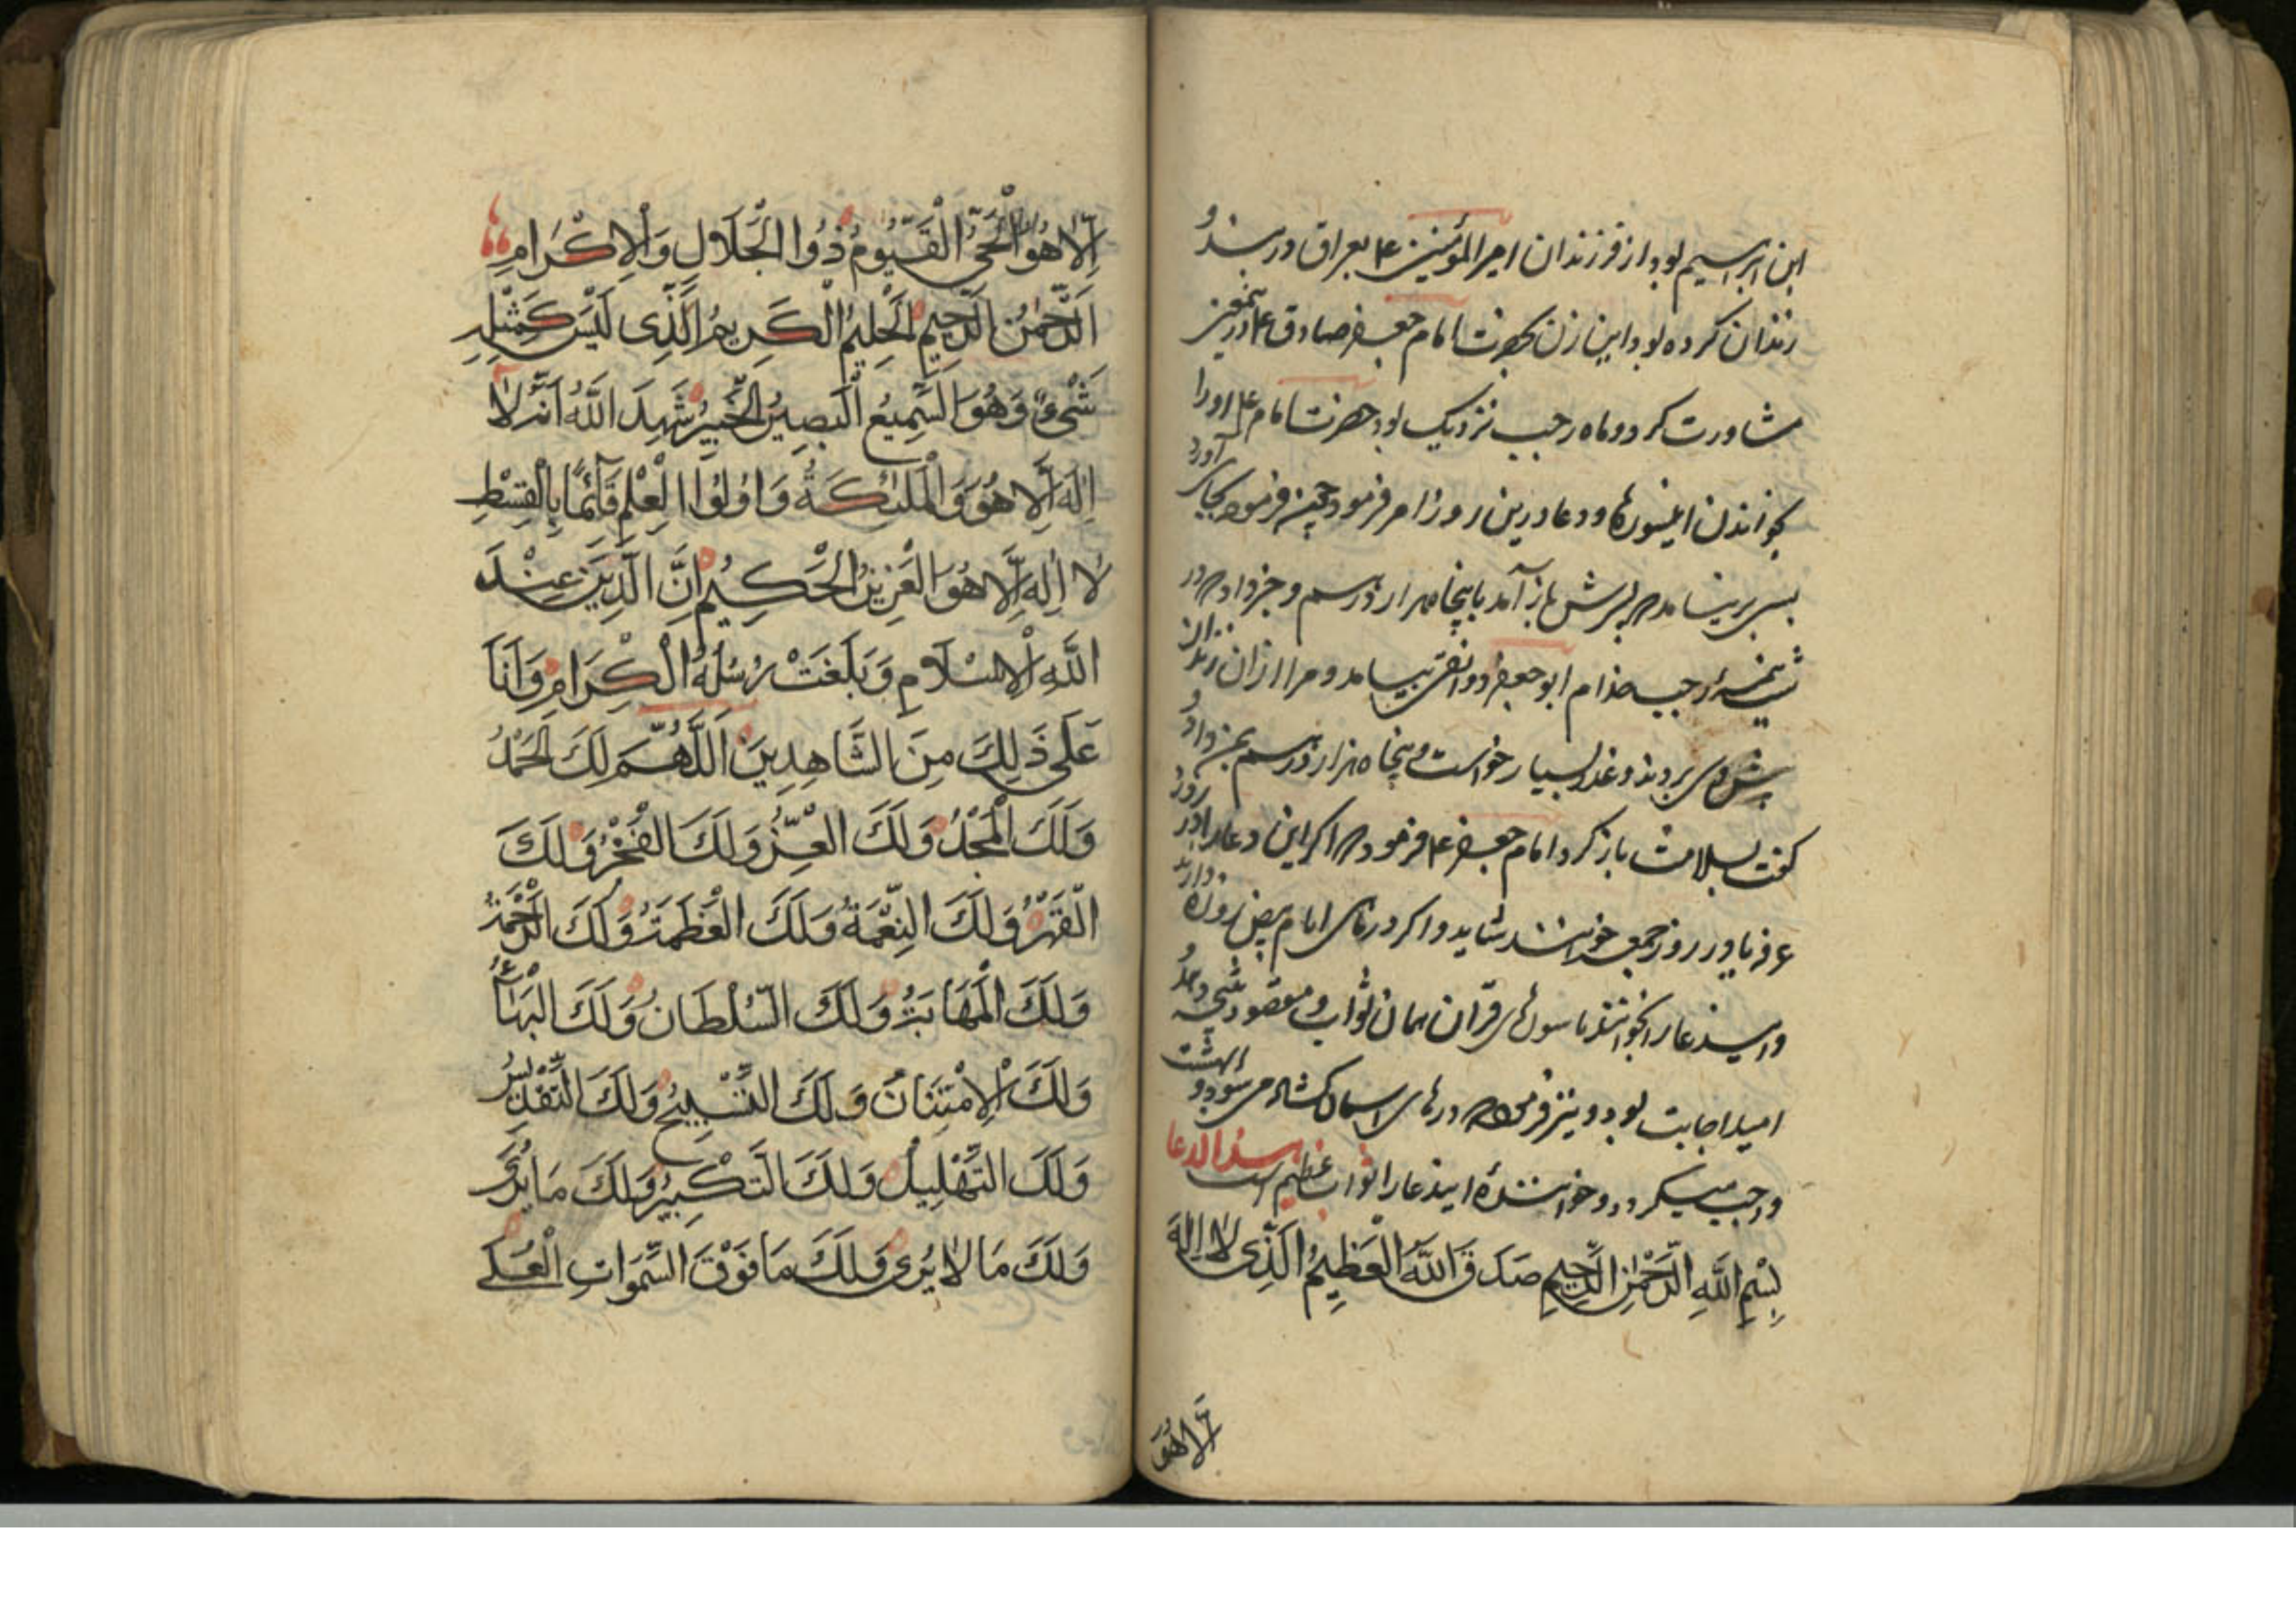 ابن ابرسیم بود از فرزندان امیر المؤمنین ع بعراق در بند و
زندان کرده بود این زن بحضرت امام جعفر صادق ع درینمعنی
مشاورت کرد و ماه رجب نزدیک بود حضرت امام ع او را
بخواندن این سورها و دعا درین روز امر فرمود چنین فرموده بجای آورد
بسی برنیامد که پسرش باز آمد با پنجاه هزار درم و خبر داد که در
شب نیمه رجب خدام ابو جعفر دوانقی بیامد و مرا از ان زندان
پیش وی بردند و عذر بسیار خواست و پنجاه هزار درم بمن داد و
گفت بسلامت باز کرد امام جعفر ع فرمود که اگر این دعا را در روز
عرفه یا در روز جمعه خوانند شاید و اگر در ماهی ایام بیض روزه دارند
و این دعا را بخوانند با سورهای قران همان ثواب و مقصود
امید اجابت بود و نیز فرمود که درهای اسمان کشاده می شود و بهشت
واجب میگردد و خوانندهٔ ایندعا را ثواب عظیم است هذا الدعا
بِسْمِ اللَّهِ الرَّحْمٰنِ الرَّحِيمِ صَدَقَ اللَّهُ الْعَظِيمُ الَّذِی لَا اِلٰهَ
اِلَّا هُوَ
اِلَّا هُوَ الْحَیُّ الْقَيُّومُ ذُوا الْجَلَالِ وَالْاِكْرَامِ
اَلرَّحْمٰنُ الرَّحِيمُ الْحَلِيمُ الْكَرِيمُ الَّذِی لَيْسَ كَمِثْلِهِ
شَیْءٌ وَهُوَ السَّمِيعُ الْبَصِيرُ الْخَبِيرُ شَهِدَ اللَّهُ اَنَّهُ لَا
اِلٰهَ اِلَّا هُوَ وَالْمَلٰئِكَةُ وَاُولُوا الْعِلْمِ قَآئِمًا بِالْقِسْطِ
لَا اِلٰهَ اِلَّا هُوَ الْعَزِيزُ الْحَكِيمُ اِنَّ الدِّينَ عِنْدَ
اللَّهِ الْاِسْلَامِ وَبَلَغَتْ رُسُلُهُ الْكِرَامِ وَاَنَا
عَلَی ذَلِكَ مِنَ الشَّاهِدِينَ اَللّٰهُمَّ لَكَ الْحَمْدُ
وَلَكَ الْمَجْدُ وَلَكَ الْعِزُّ وَلَكَ الْفَخْرُ وَلَكَ
الْقَهْرُ وَلَكَ النِّعْمَةُ وَلَكَ الْعَظَمَةُ وَلَكَ الرَّحْمَةُ
وَلَكَ الْمَهَابَةُ وَلَكَ السُّلْطَانُ وَلَكَ الْبَهَآءُ
وَلَكَ الْاِمْتِنَانُ وَلَكَ التَّسْبِيحُ وَلَكَ التَّقْدِيسُ
وَلَكَ التَّهْلِيلُ وَلَكَ التَّكْبِيرُ وَلَكَ مَا يُرَی
وَلَكَ مَا لَا يُرَی وَلَكَ مَا فَوْقَ السَّمٰوَاتِ الْعُلٰی